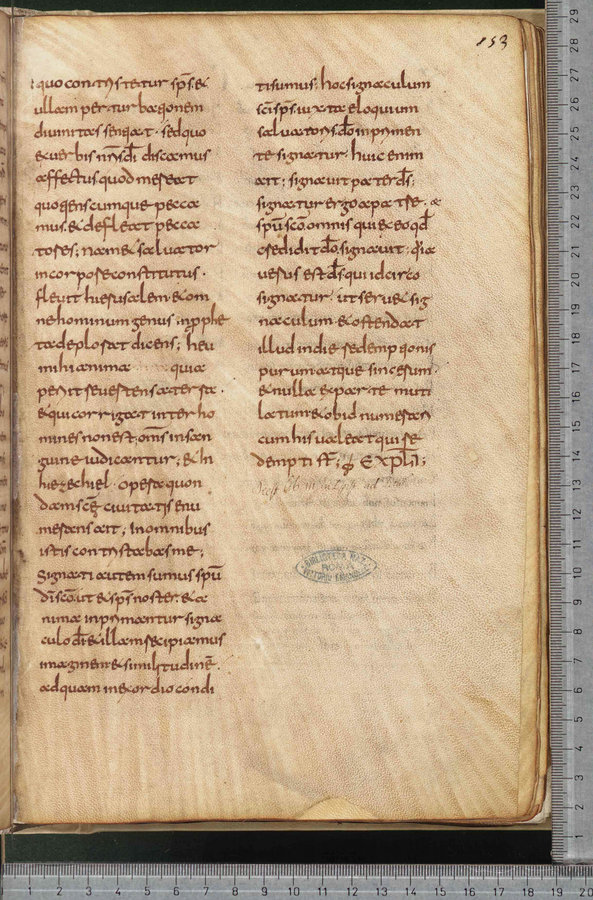 153
quo contristetur sps. et
ullam perturbationem
divinitas sentiat. sed quo
ex verbis nris di discamus
affectus quod mereat
quotienscumque pecca
mus. et defleat pecca
tores; nam et salvator
in corpore constitutus.
flevit hierusalem et om
ne hominum genus. in pphe
ta deplorat dicens; heu
mihi anima quia
periit revertens a terra.
et qui corrigat inter ho
mines non est; oms in san
guine iudicantur; et in
hiezechiel. opera quon
dam scae civitatis enu
merans ait; In omnibus
istis contristabas me;
Signati autem sumus spu
di sco. ut et sps noster. et a
nima inprimantur signa
culo di. et illam recipiamus
imaginem et similitudine.
ad quam in exordio condi
ti sumus; hoc signaculum
sci sps. iuxta eloquium
salvatoris. do inprimen
te signatur. huic enim
ait; signavit pater ds;
signatur ergo a patre. a
spu sco. omnis qui ex eo qd
credidit do. signavit. qa
verus est ds. qui idcirco
signatur. ut servet sig
naculum. et ostendat
illud in die redemptionis
purum atque sincerum
et nulla ex parte muti
latum. et ob id numerari
cum his valeat qui re
dempti st; EXPL. I;
BIBLIOTECA NAZ.
ROMA
VITTORIO EMANUELE